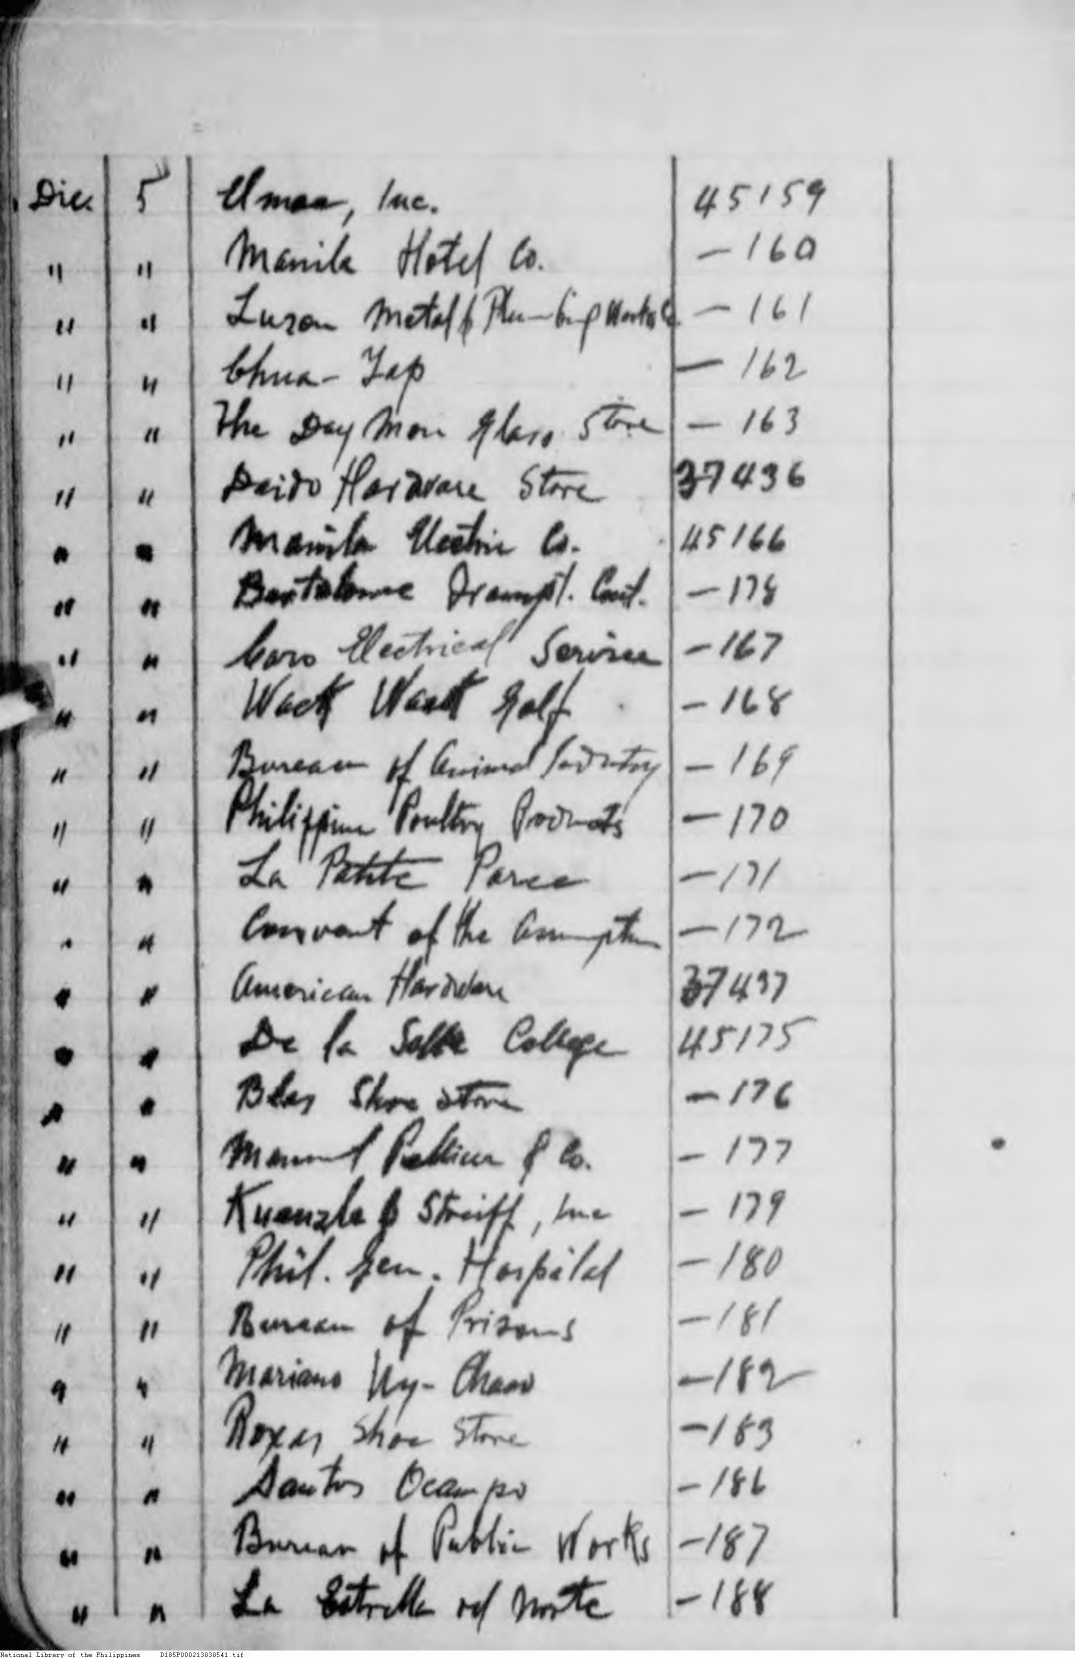 Dic. 5 Elmaa, Inc. 45159
" " Manila Hotel Co. - 160
" " Luzon Metal & Plumbing Works Co. - 161
" " Chua - Yap - 162
" " The Day Mon Glass Store - 163
" " Daido Hardware Store 37436
" " Manila Electric Co. 45166
" " Bartolome Transpt. Cont. - 178
" " Caro Electrical Service - 167
" " Wack Wack Golf - 168
" " Bureau of Animal Industry - 169
" " Philippine Poultry Products - 170
" " La Petite Paree - 171
" " Convent of the Assumption - 172
" " American Hardware 37437
" " De la Salle College 45175
" " Blas Shoe Store - 176
" " Manuel Pellicer & Co. - 177
" " Kuenzle & Streiff, Inc - 179
" " Phil. Gen. Hospital - 180
" " Bureau of Prisons - 181
" " Mariano Uy - Chaco - 182
" " Roxas Shoe Store - 183
" " Santos Ocampo - 186
" " Bureau of Public Works - 187
" " La Estrella del Norte - 188
National Library of the Philippines D185P000213030541.tif